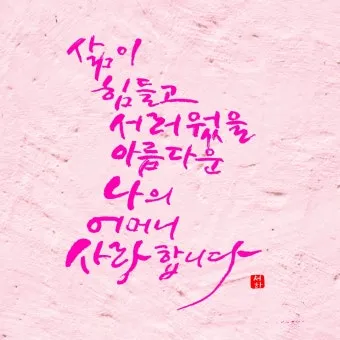 삶이
힘들고
서러웠을
아름다운
나의
어머니
사랑합니다
서하